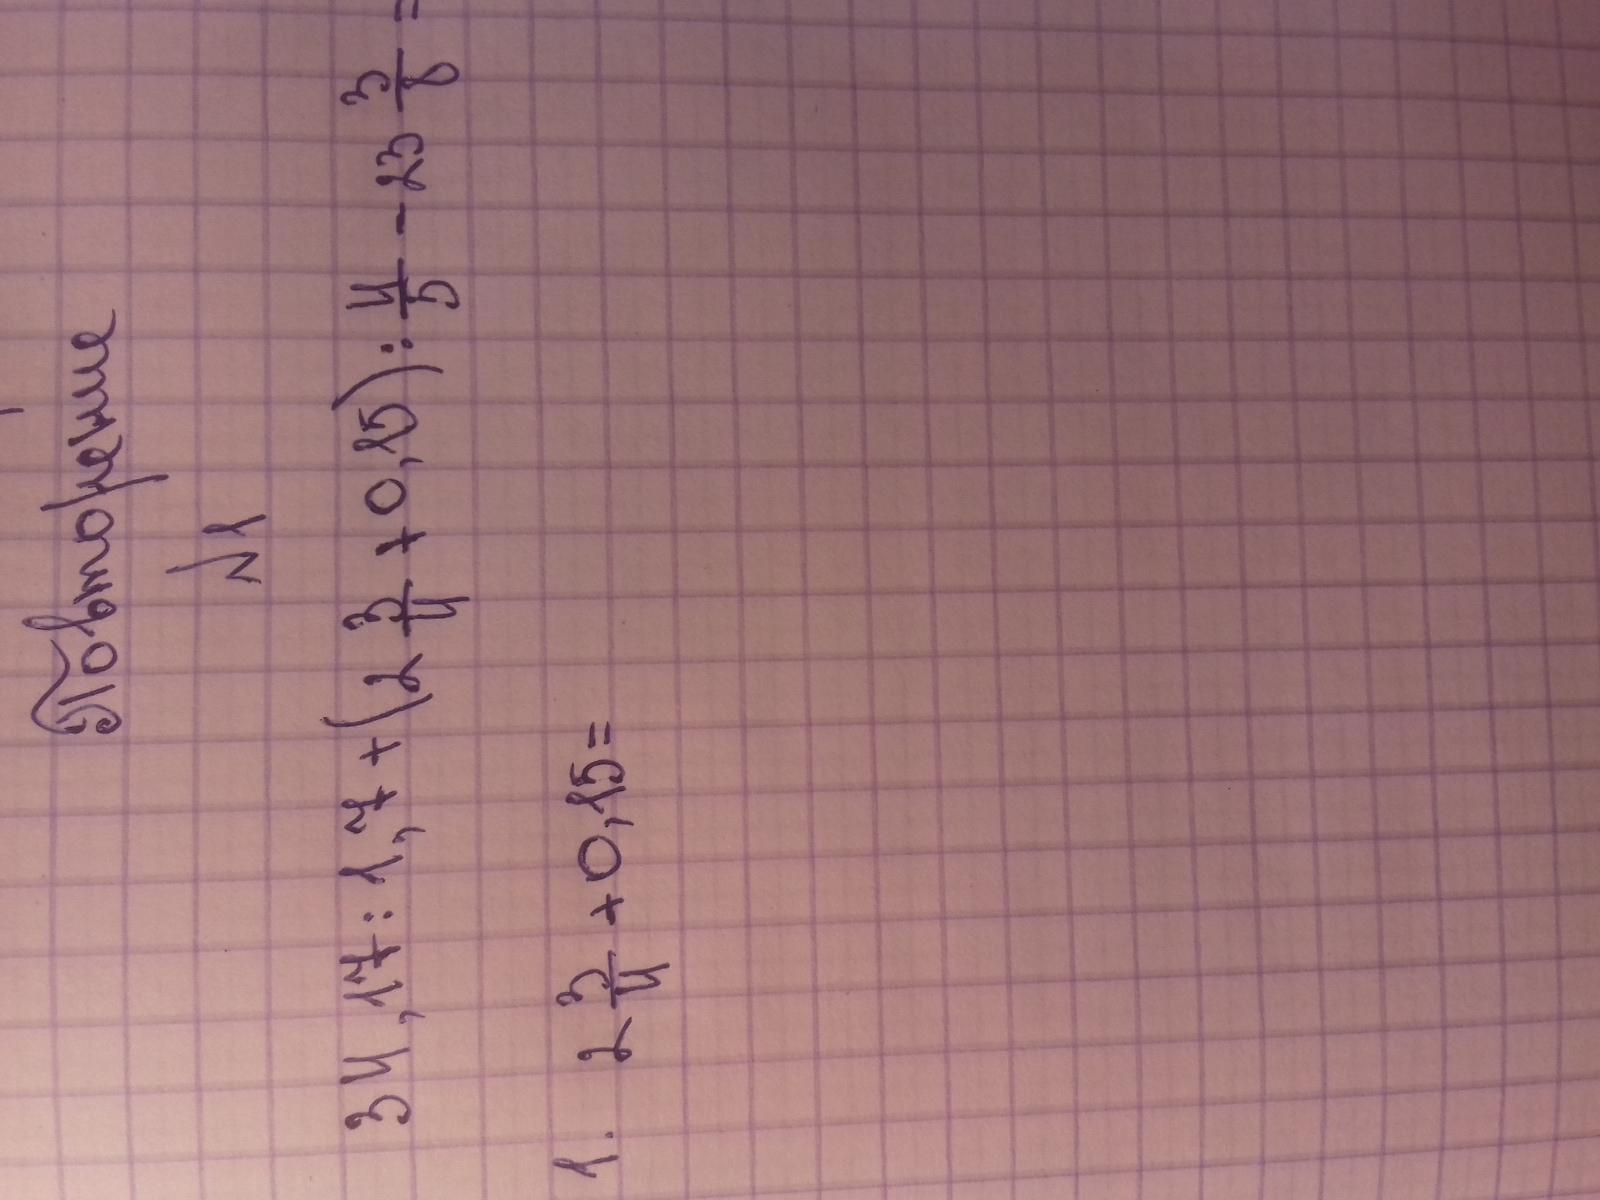 Повторение
№1
34,17 : 1,7 + (2 3/4 + 0,15) : 4/5 - 23 3/8 =
1. 2 3/4 + 0,15 =